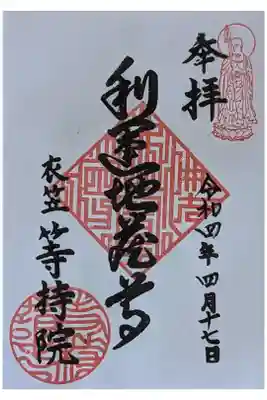 奉拝
令和四年四月十七日
利運地蔵尊
衣笠 等持院